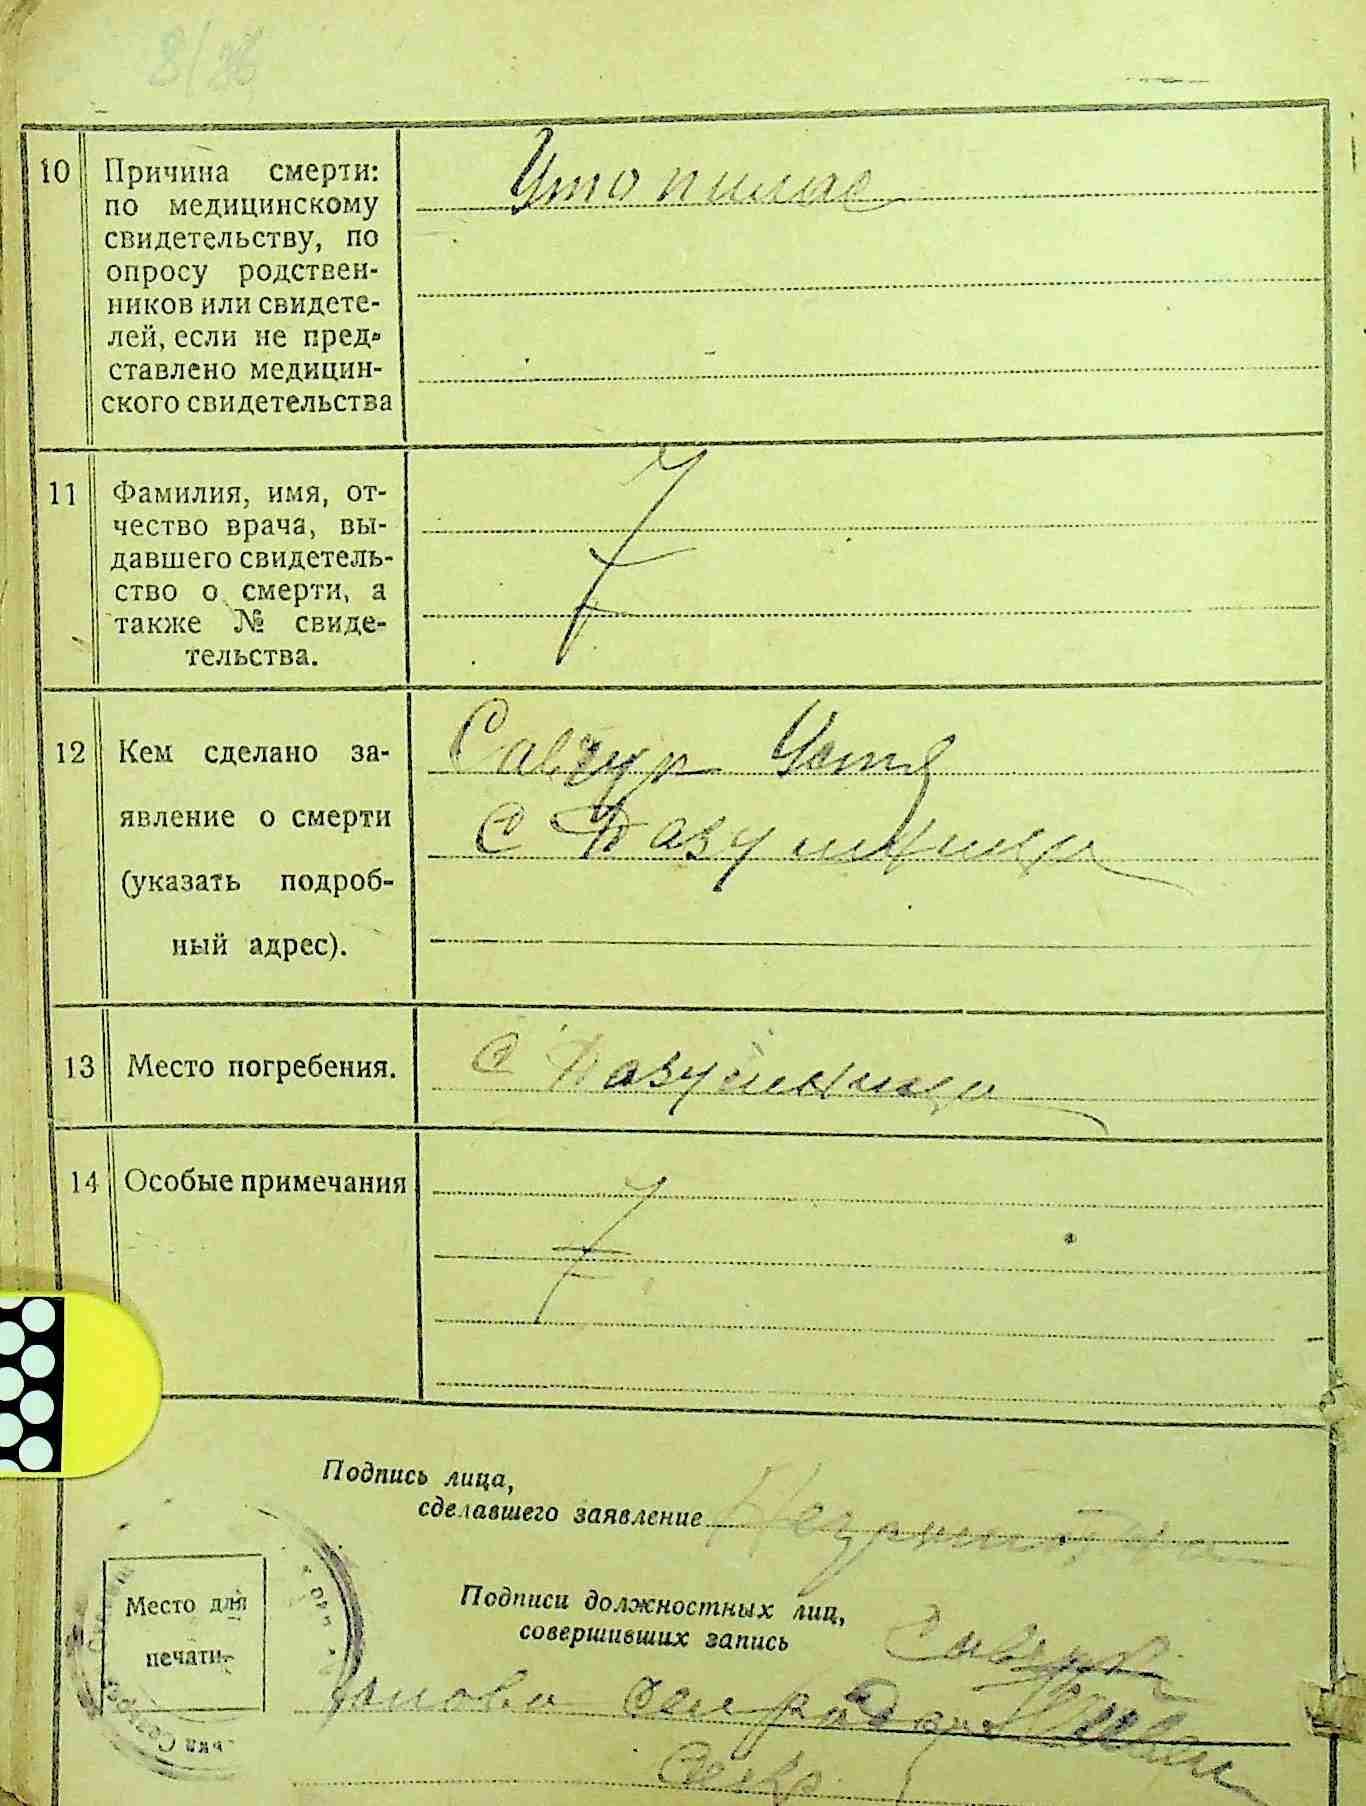 10 Причина смерти:
по медицинскому
свидетельству, по
опросу родствен-
ников или свидете-
лей, если не пред-
ставлено медицин-
ского свидетельства
Утопилас
11 Фамилия, имя, от-
чество врача, вы-
давшего свидетель-
ство о смерти, а
также № свиде-
тельства.
12 Кем сделано за-
явление о смерти
(указать подроб-
ный адрес).
Савчук Устя
С
13 Место погребения.
С
14 Особые примечания
Подпись лица,
сделавшего заявление
Подписи должностных лиц,
совершивших запись
Место для
печати
Голова сельради
Секр